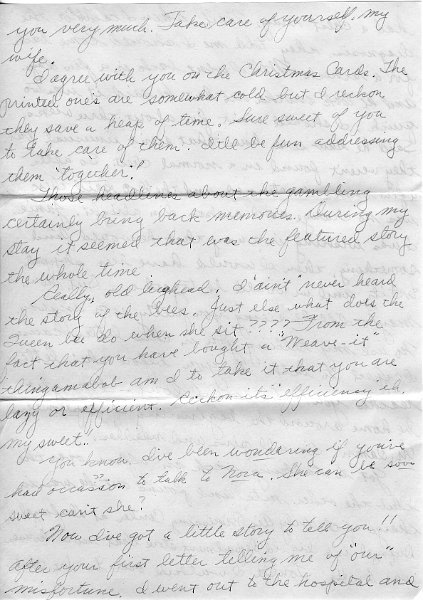 you very much. Take care of yourself, my
wife.
I agree with you on the Christmas Cards. The
printed one's are somewhat cold but I reckon
they save a heap of time. Sure sweet of you
to take care of them. It'll be fun addressing
them "together"!
Those headlines about the gambling
certainly bring back memories. During my
stay it seemed that was the featured story
the whole time.
Really, old, I "ain't" never heard
the story of the bees. Just else what does the
Queen bee do when she sit???? From the
fact that you have bought a "Weave-it"
thingamabob am I to take it that you are
lazy or efficient. Reckon its efficiency eh,
my sweet.
You know I've been wondering if you've
had occassion to talk to Nova. She can be sooo
sweet can't she?
Now I've got a little story to tell you!!
After your first letter telling me of "our"
misfortune, I went out to the hospital and